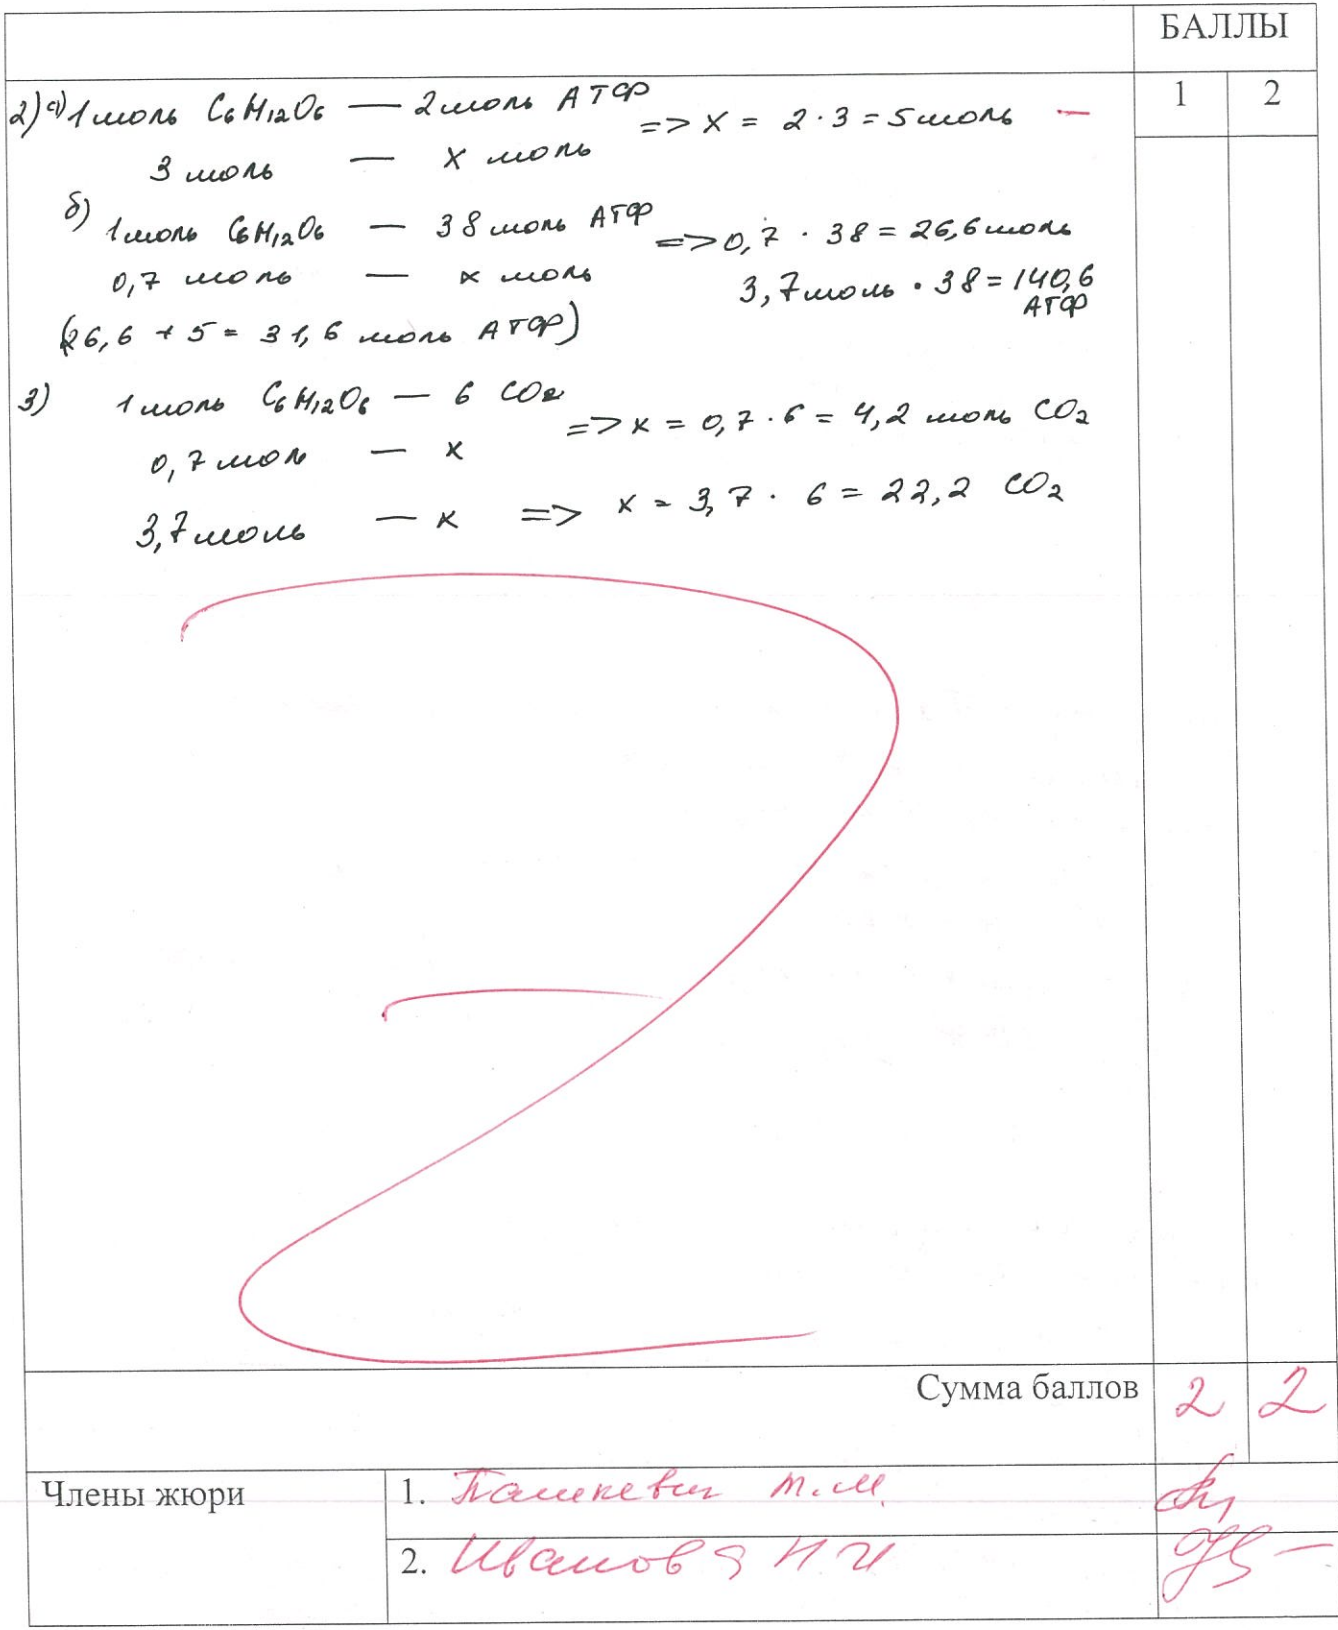 БАЛЛЫ
1 2
2) а) 1 моль C₆H₁₂O₆ — 2 моль АТФ
=> x = 2 · 3 = 5 моль —
3 моль — x моль
б) 1 моль C₆H₁₂O₆ — 38 моль АТФ
=> 0,7 · 38 = 26,6 моль
0,7 моль — x моль
3,7 моль · 38 = 140,6
АТФ
(26,6 + 5 = 31,6 моль АТФ)
3) 1 моль C₆H₁₂O₆ — 6 CO₂
=> x = 0,7 · 6 = 4,2 моль CO₂
0,7 моль — x
3,7 моль — x => x = 3,7 · 6 = 22,2 CO₂
Сумма баллов 2 2
Члены жюри
1. Пашкевич Т.М.
2. Иванова Н И